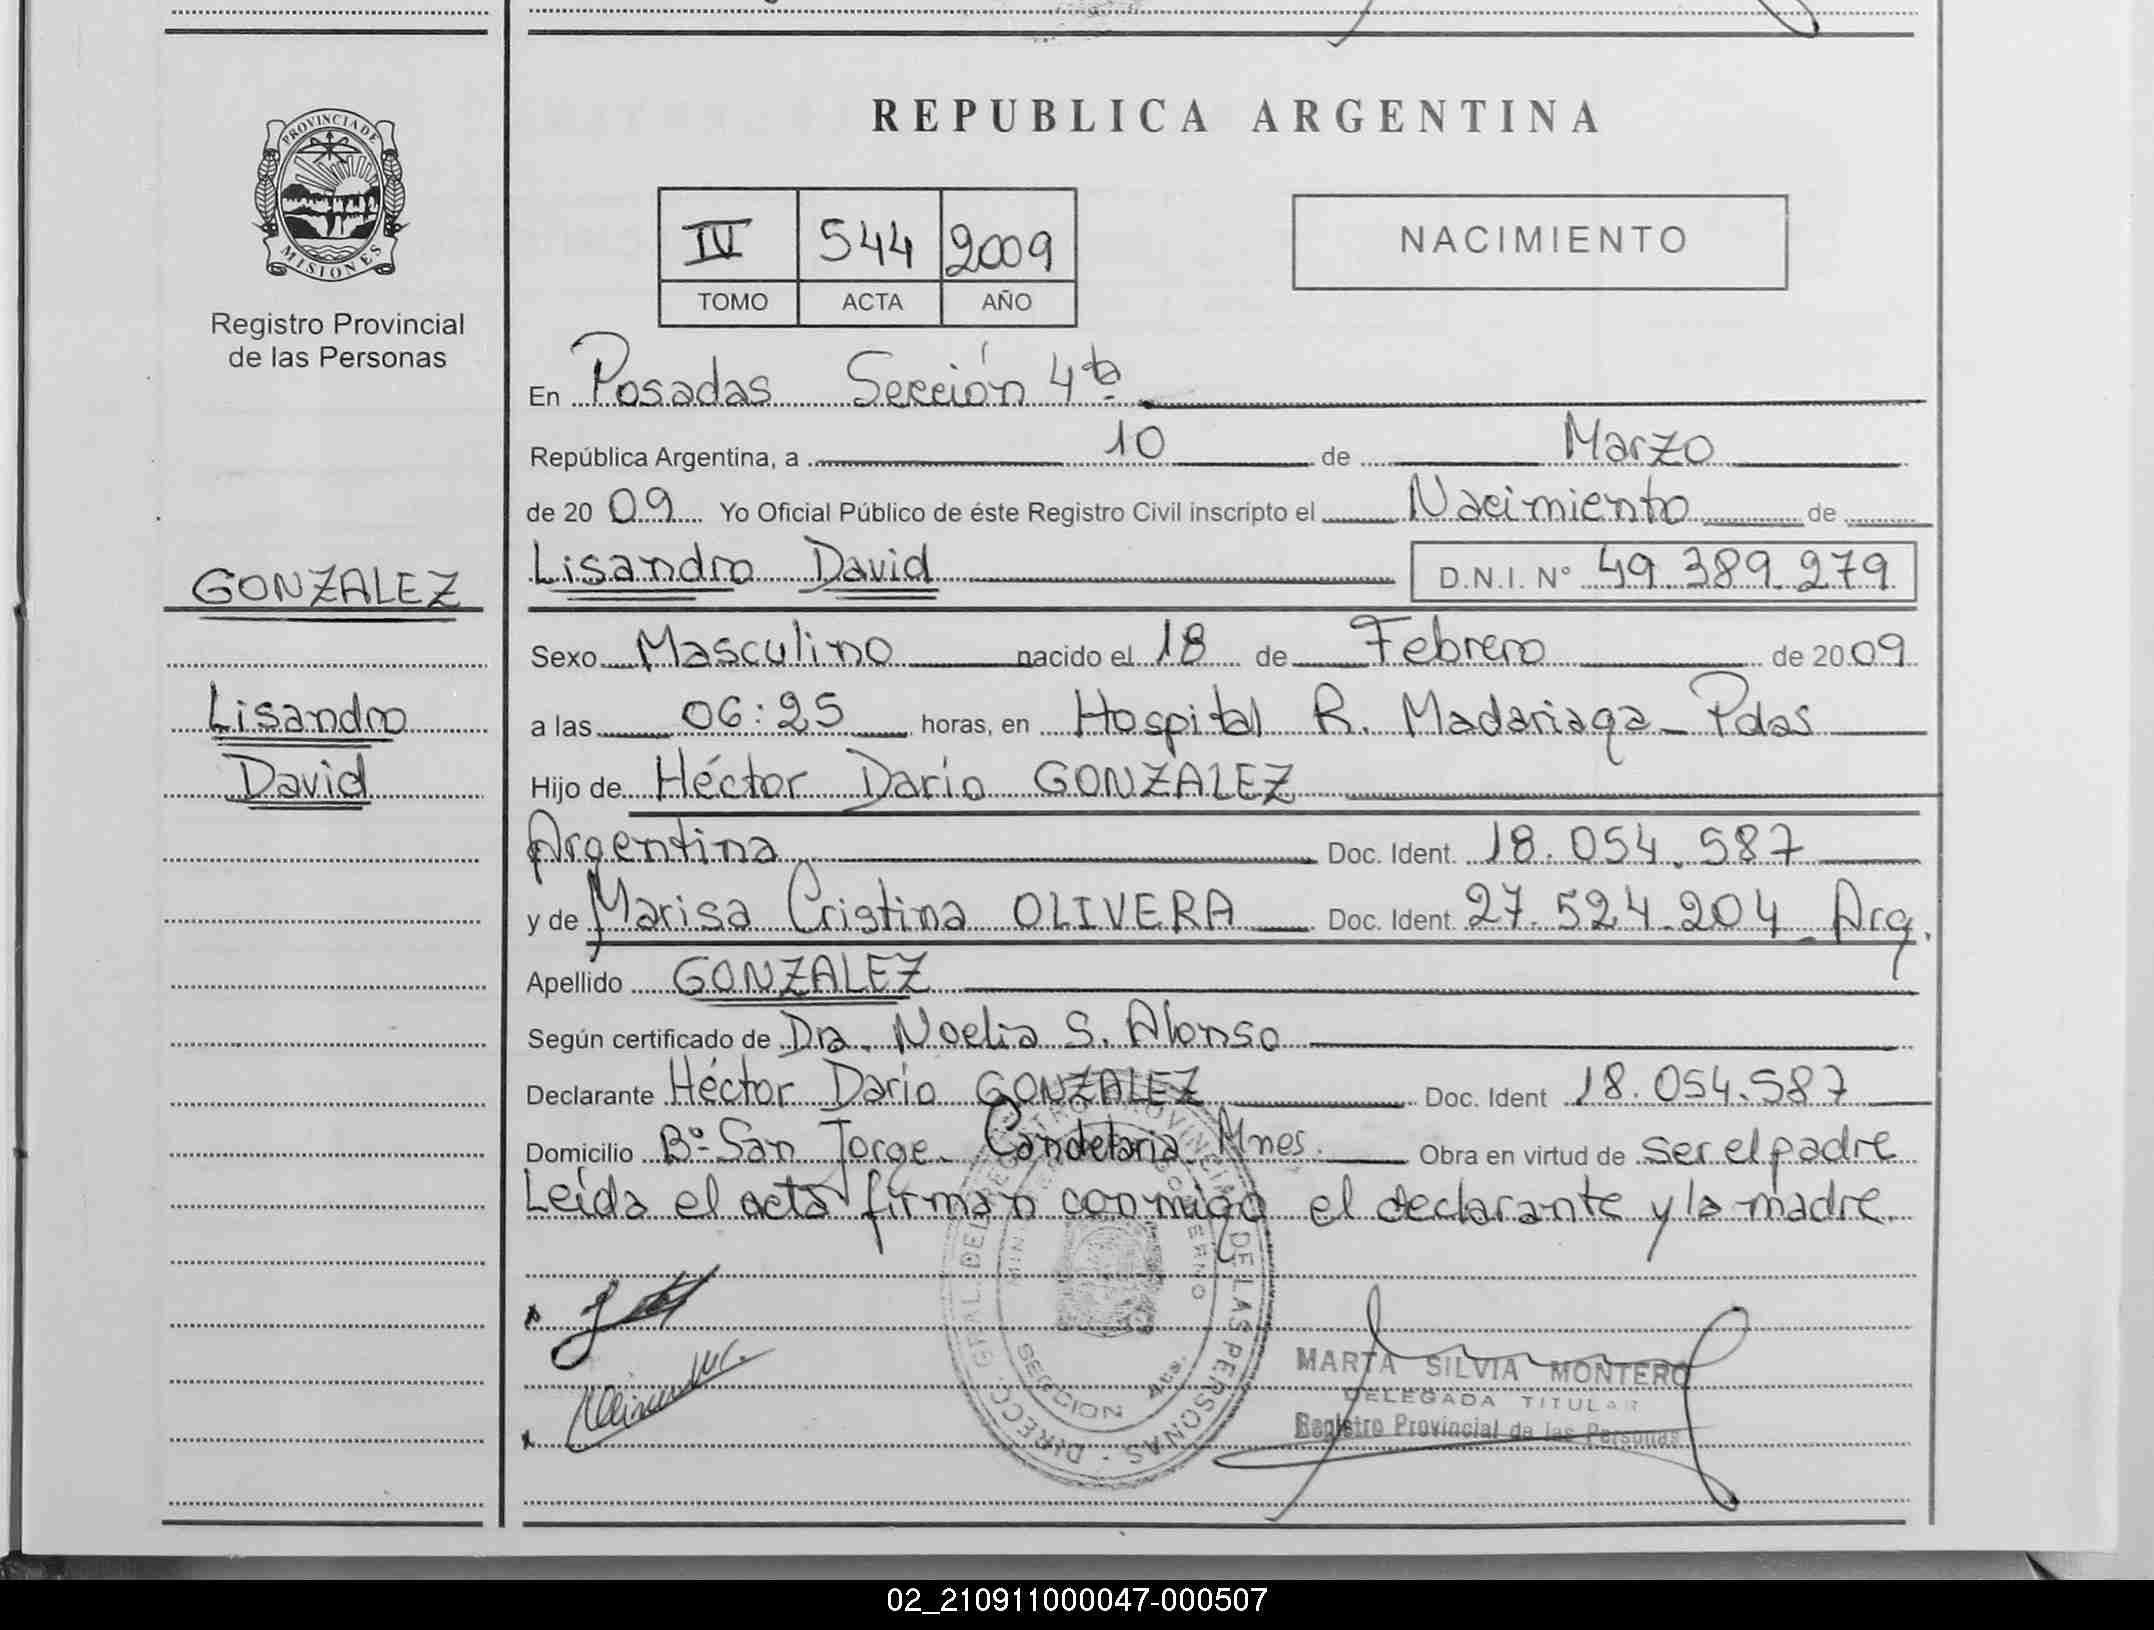 PROVINCIA DE
MISIONES
Registro Provincial
de las Personas
GONZALEZ
Lisandro
David
REPUBLICA ARGENTINA
IV 544 2009
TOMO ACTA AÑO
NACIMIENTO
En Posadas Sección 4ta
República Argentina, a 10 de Marzo
de 20 09 Yo Oficial Público de éste Registro Civil inscripto el Nacimiento de
Lisandro David D.N.I. N° 49.389.279
Sexo Masculino nacido el 18 de Febrero de 20 09
a las 06:25 horas, en Hospital R. Madariaga - Pdas
Hijo de Héctor Darío GONZALEZ
Argentina Doc. Ident. 18.054.587
y de Marisa Cristina OLIVERA Doc. Ident. 27.524.204 - Arg.
Apellido GONZALEZ
Según certificado de Dra. Noelia S. Alonso
Declarante Héctor Darío GONZALEZ Doc. Ident 18.054.587
Domicilio B° San Jorge. Candelaria. Mnes. Obra en virtud de ser el padre
Leída el acta firman conmigo el declarante y la madre.
DIRECC. GRAL. DEL REGISTRO PROVINCIAL DE LAS PERSONAS
SECCION 4ta.
MARTA SILVIA MONTERO
DELEGADA TITULAR
Registro Provincial de las Personas
02_210911000047-000507